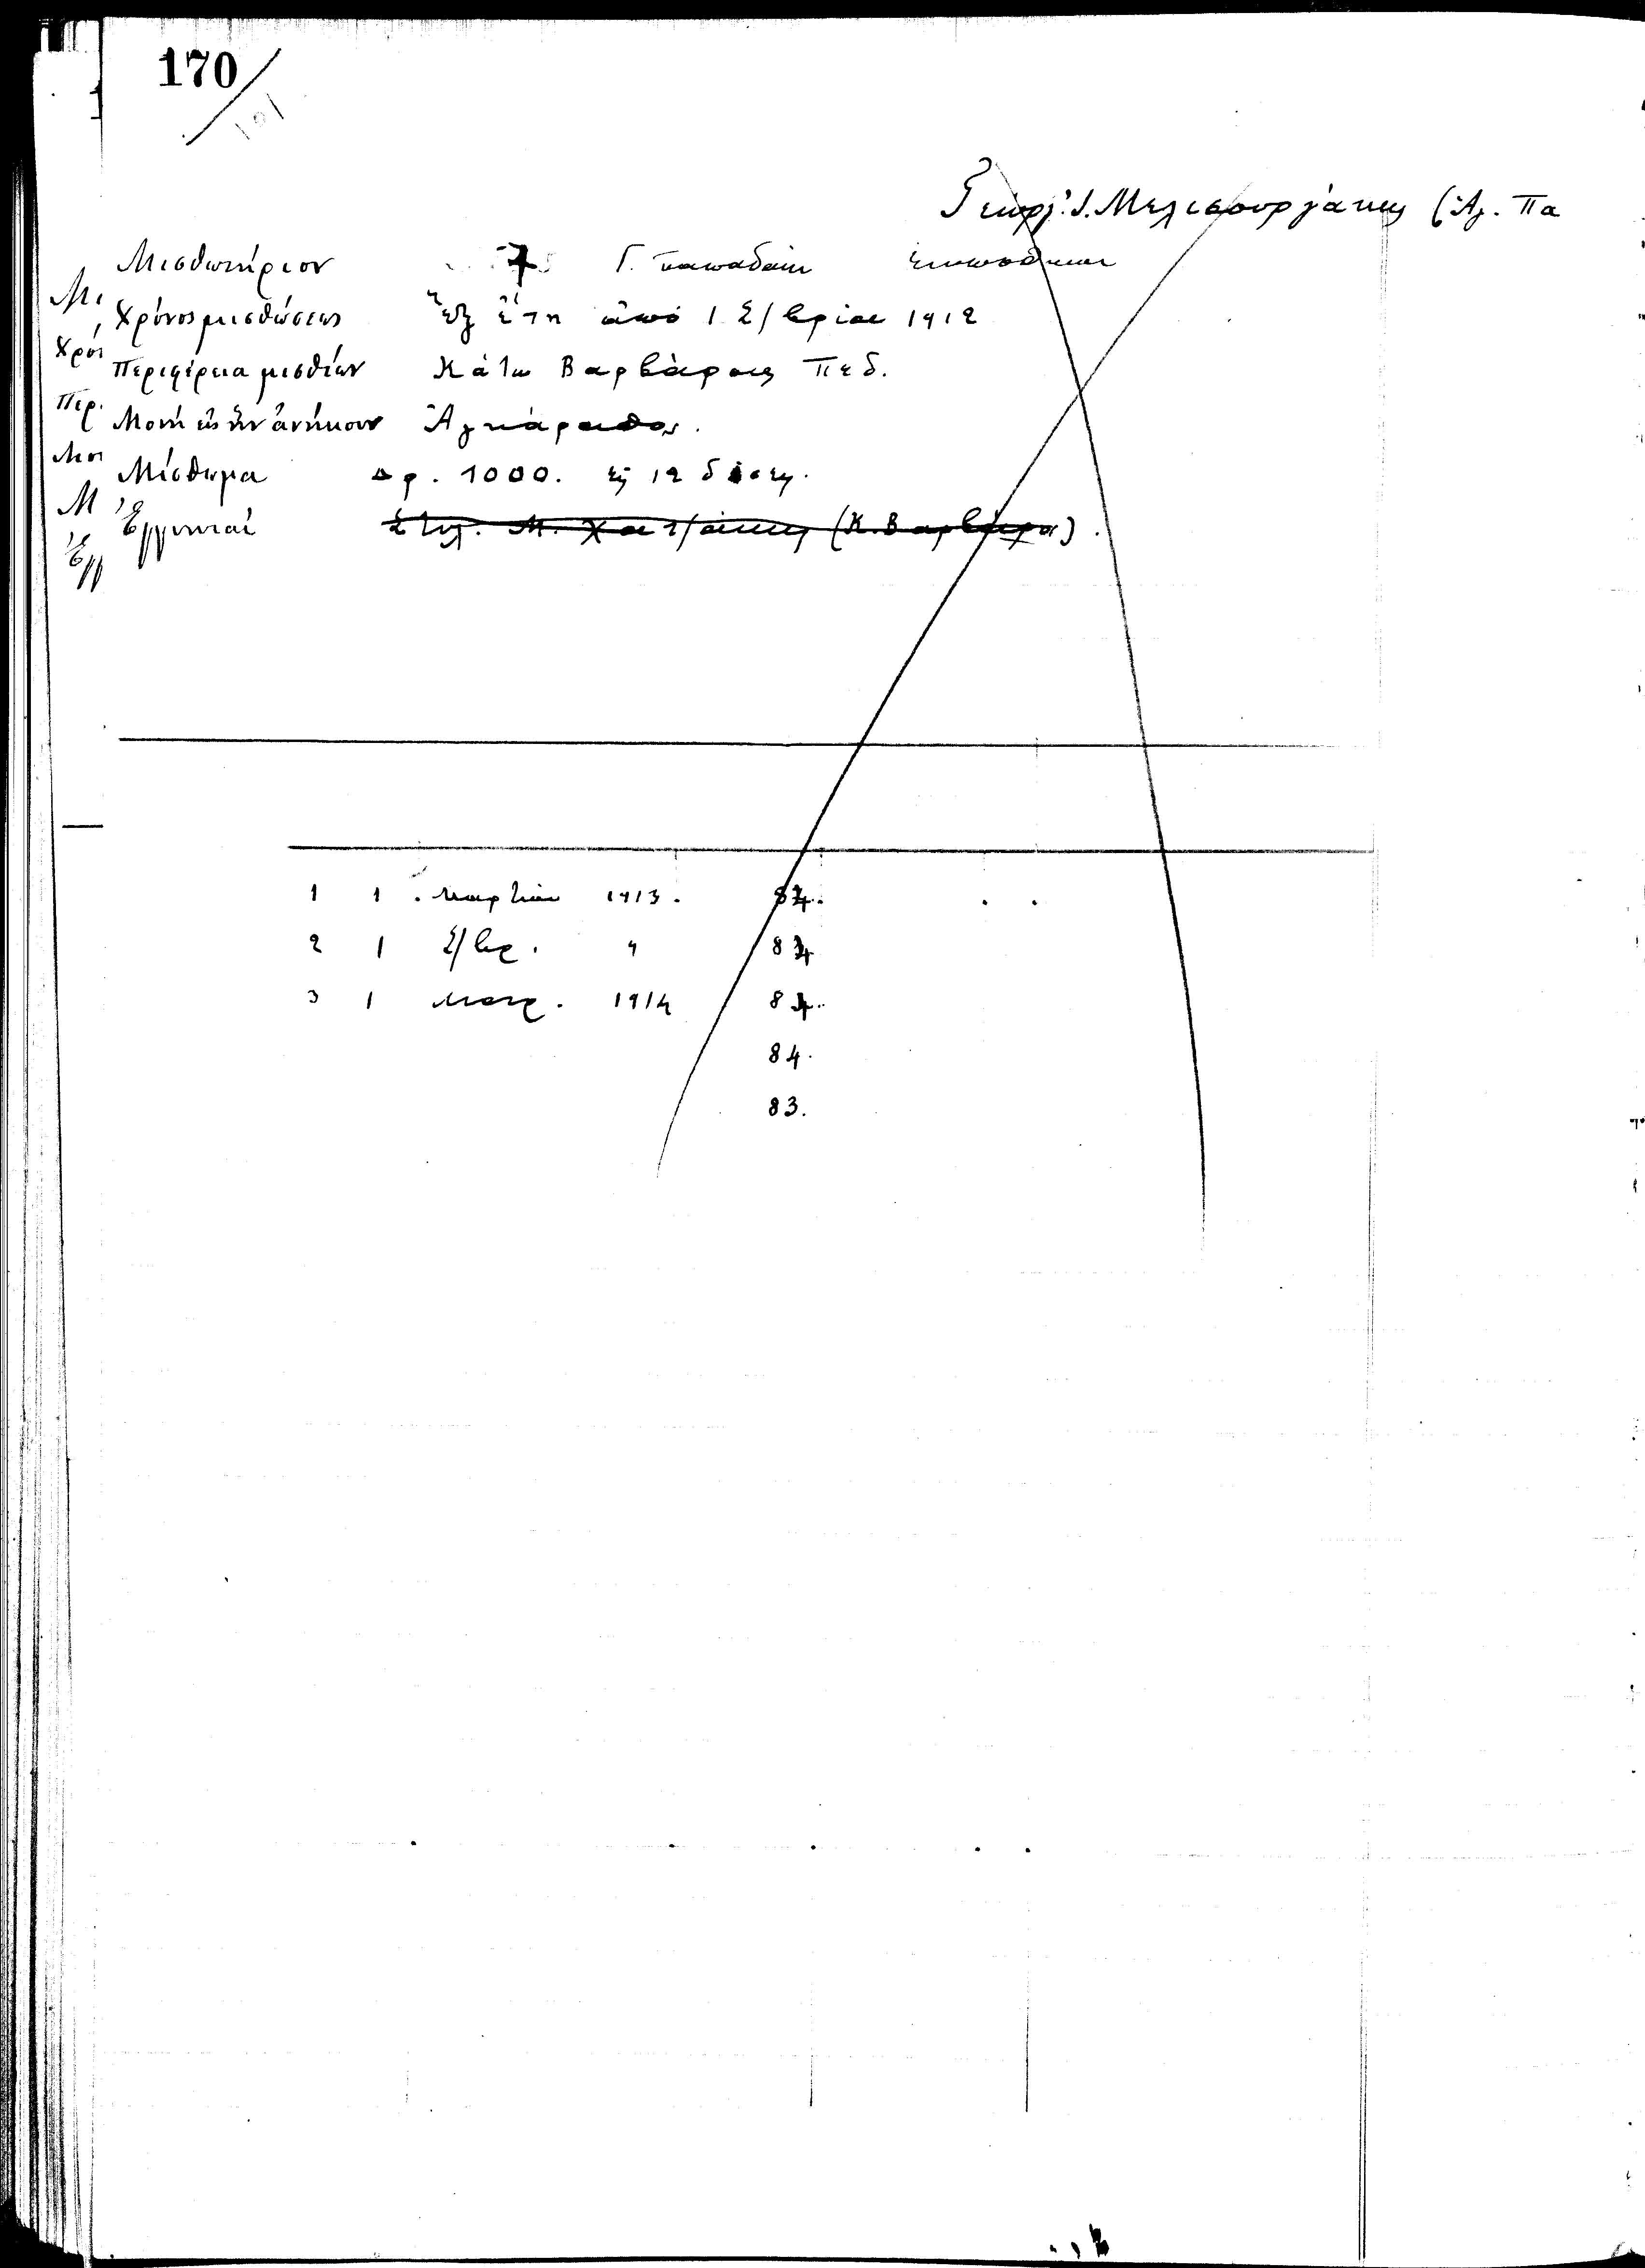 170
101
Γεώργ. Ι. Μελισουργάκης (Ἁγ. Πα
Μισθωτήριον 7 Γ. Παπαδάκι
Χρόνος μισθώσεως Ἕξ ἔτη ἀπό 1 Σ/βρίου 1912
Περιφέρεια μισθίων Κάτω Βαρβάρους Πεδ.
Μονή εἰς ἥν ἀνήκουν Ἀγκάραθος.
Μίσθωμα Δρ. 1000. εἰς 12 δόσεις.
Ἐγγυηταί Στυλ. Μ. Χατζάκης (Κ. Βαρβάρο).
Μι
Χρόν
Περ.
Μον
Μ
Ἐγγ
1 1. Μαρτίου 1913. 84.
2 1 Σ/βρ. " 84
3 1 Μαρ. 1914 84.
84.
83.